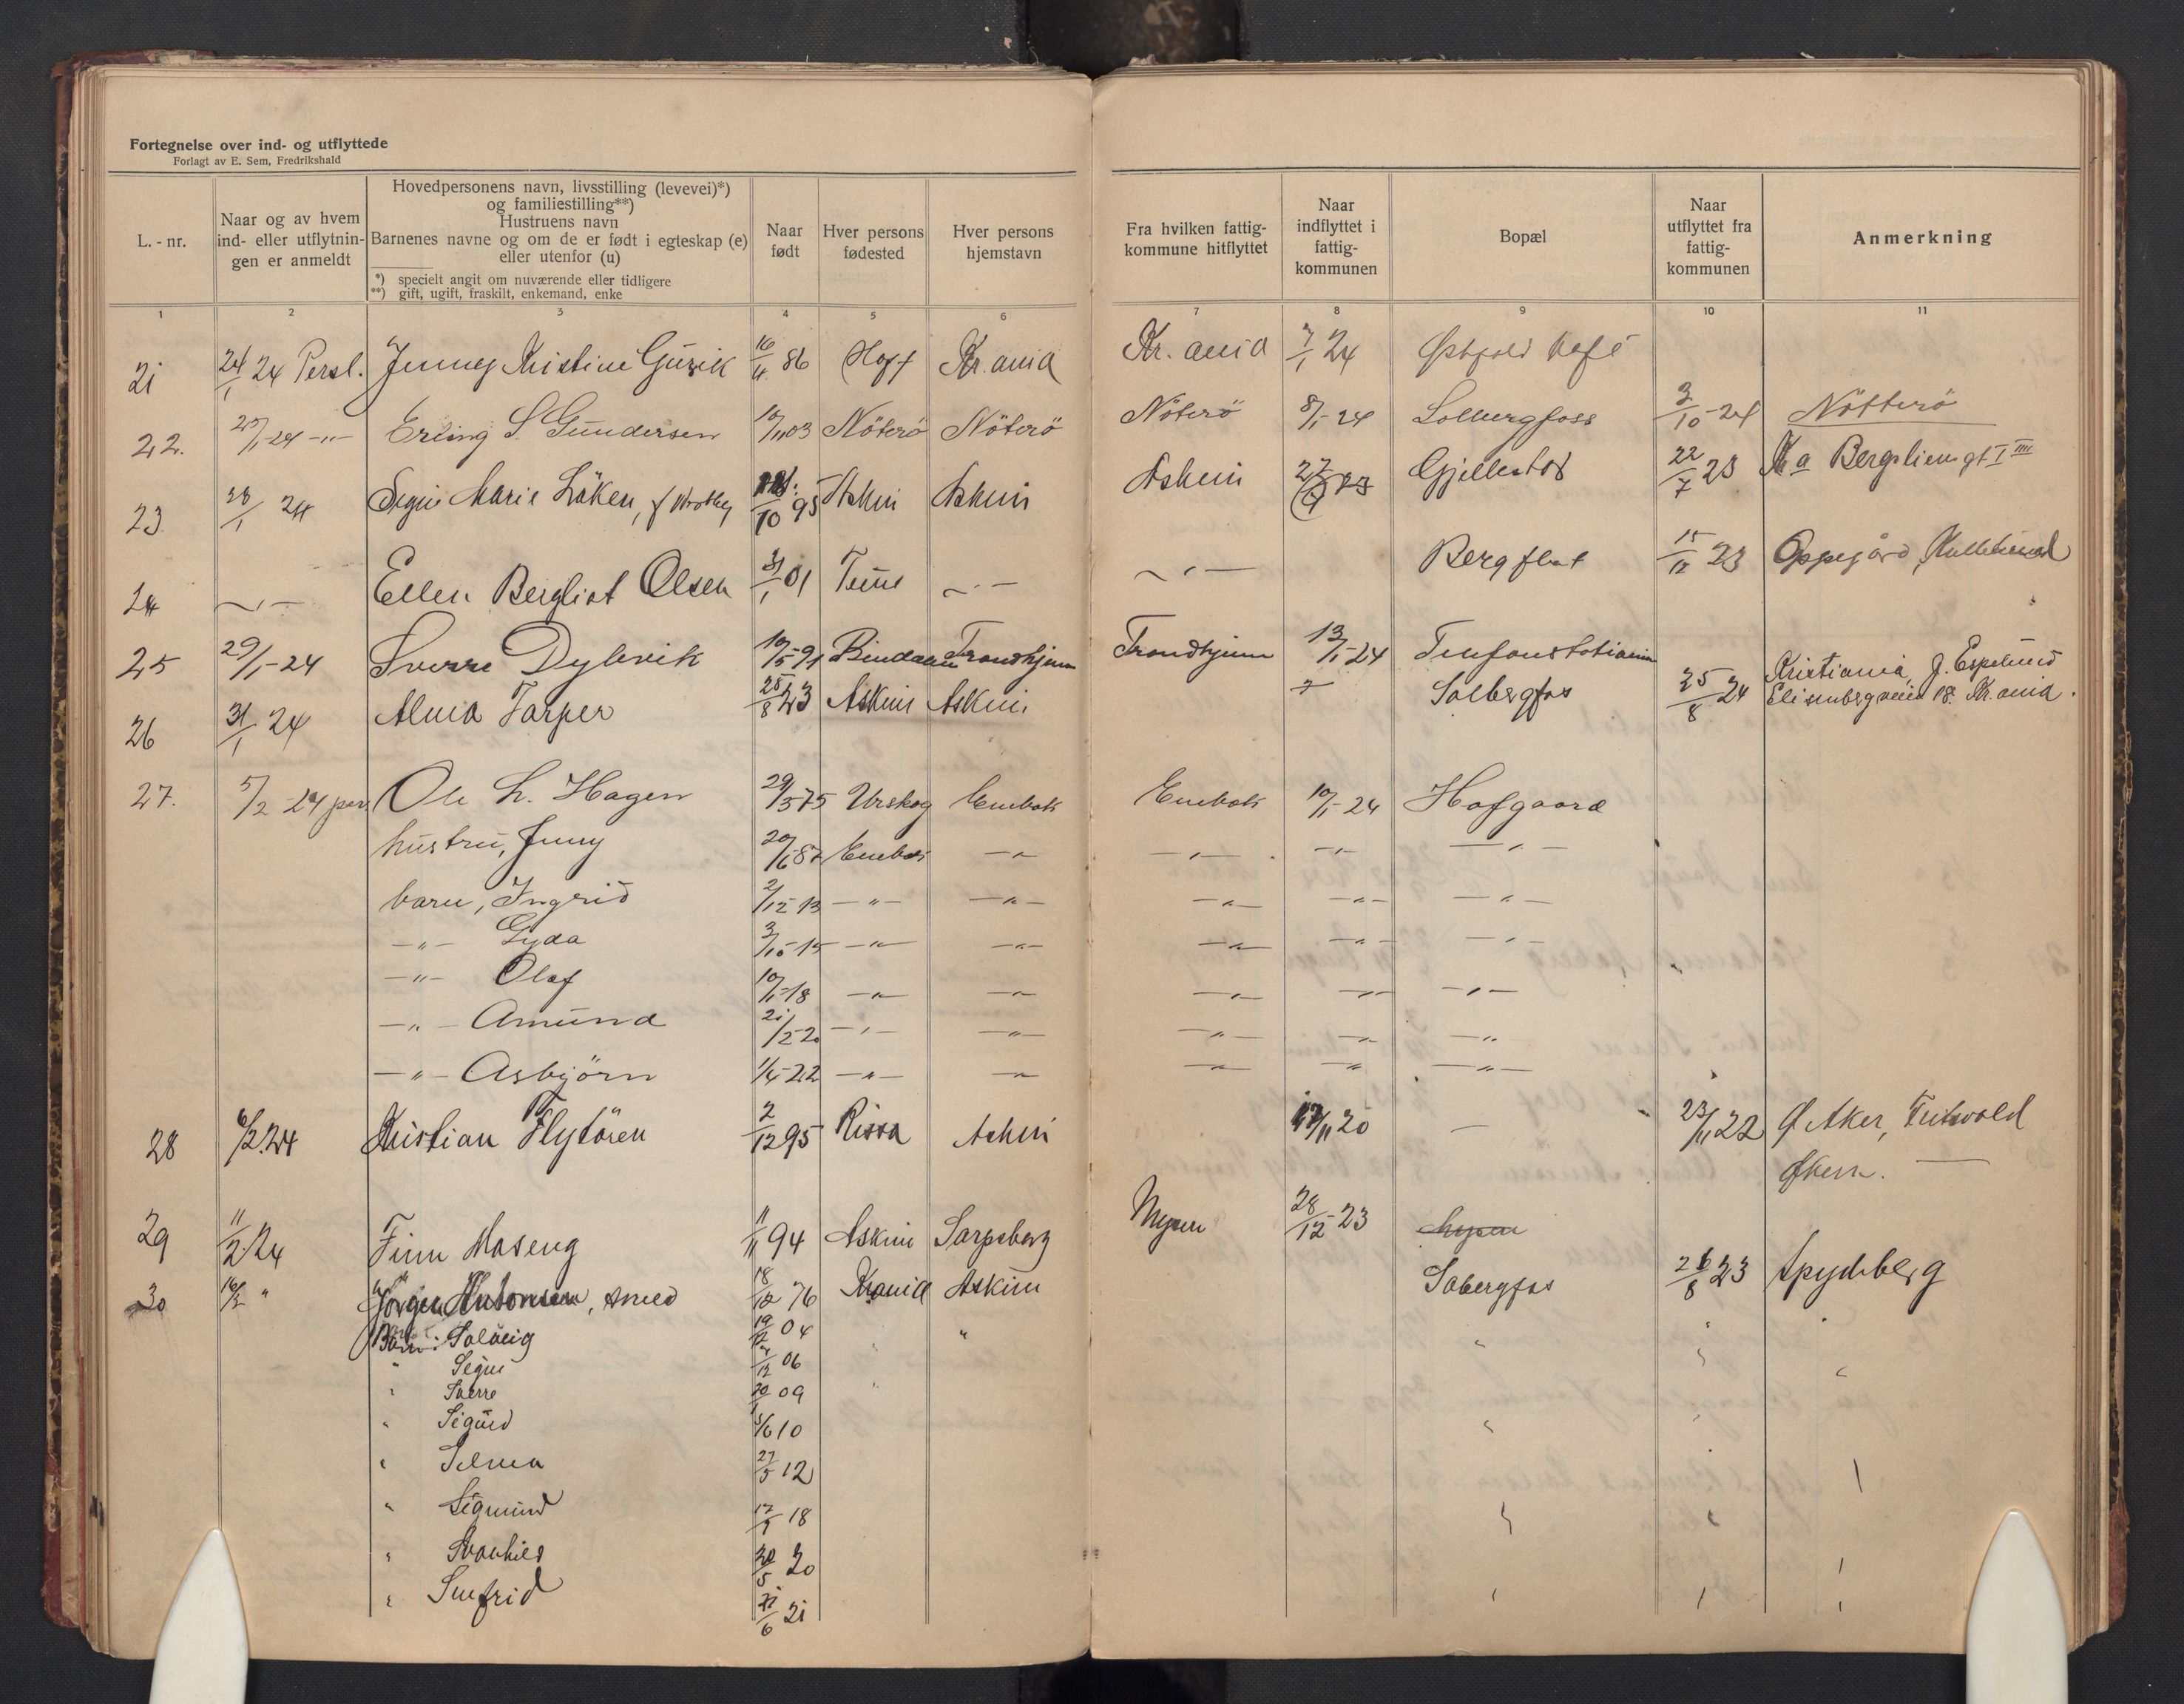 Fortegnelse over ind- og utflyttede
Forlagt av E. Sem, Fredrikshald
L.-nr.
Naar og av hvem ind- eller utflytnin-gen er anmeldt
Hovedpersonens navn, livsstilling (levevei)*)
og familiestilling**)
Hustruens navn
Barnenes navne og om de er født i egteskap (e)
eller utenfor (u)
*) specielt angit om nuværende eller tidligere
**) gift, ugift, fraskilt, enkemand, enke
Naar født
Hver persons fødested
Hver persons hjemstavn
Fra hvilken fattig-kommune hitflyttet
Naar indflyttet i fattig-kommunen
Bopæl
Naar utflyttet fra fattig-kommunen
Anmerkning
1 2 3 4 5 6 7 8 9 10 11
21 24/1 24 Persl. Jenny Kristine 16/11 86 Hoff Kr.ania Kr.ania 7/1 24 Østfold Kafé
22. 25/1-24 -"- Erling S. Gundersen 10/11 03 Nöterö Nöterö Nöterö 8/1-24 Solbergfoss 3/10-24 Nötterö
23 28/1 24 Signe Marie Löken, 10 95 Askim Askim Askim 23 Gjellestad 22/7 23 Kra Bergsliensgt I IIII
24 -"- Ellen Bergliot Olsen 31/1 01 -"- -"- Bergflot 15/12 23 Oppegård,
25 29/1-24 Sverre Dybvik 10/5-91 Bindalen Trondhjem Trondhjem 13/1-24 25/8 24 Kristiania, J. Espelund
26 31/1 24 Alvia Tarper 25/8 23 Askim Askim Solbergfos Elisenbergveien 18. Kr.ania.
27. 5/2-24 per Ole L. Hagen 29/3 75 Urskog Enebak Enebak 10/1-24 Hofgaard
hustru, Jenny 20/6 87 Enebak -"- -"- -"- -"-
barn, Ingrid 2/12-13 -"- -"- -"- -"- -"-
-"- Gyda 3/10-15 -"- -"- -"- -"- -"-
-"- Olaf 10/1-18 -"- -"- -"- -"- -"-
-"- Amund 21/2 20 -"- -"- -"- -"- -"-
-"- Asbjörn 1/4-22 -"- -"- -"- -"- -"-
28 6/2.24 Kristian Flytören 2/12 95 Rissa Askim 17/11 20 — 23/11 22 Ø Aker,
Økern. —
29 11/2 24 Finn Maseng 11/11 94 Askim Sarpsborg Mysen 28/12-23 Mysen
30 16/2 " Jörgen Antonsen, smed 18/12 76 Krania Askim Sobergfos 26/8 23 Spydeberg
Barn: Solveig 19/12 04 "
" Signe 12 06
" Sverre 20/1 09
" Sigurd 5/6 10
" Selma 27/5 12
" Sigmund 17/9 18
" Svanhild 30/5 20
" Snefrid 21/6 21